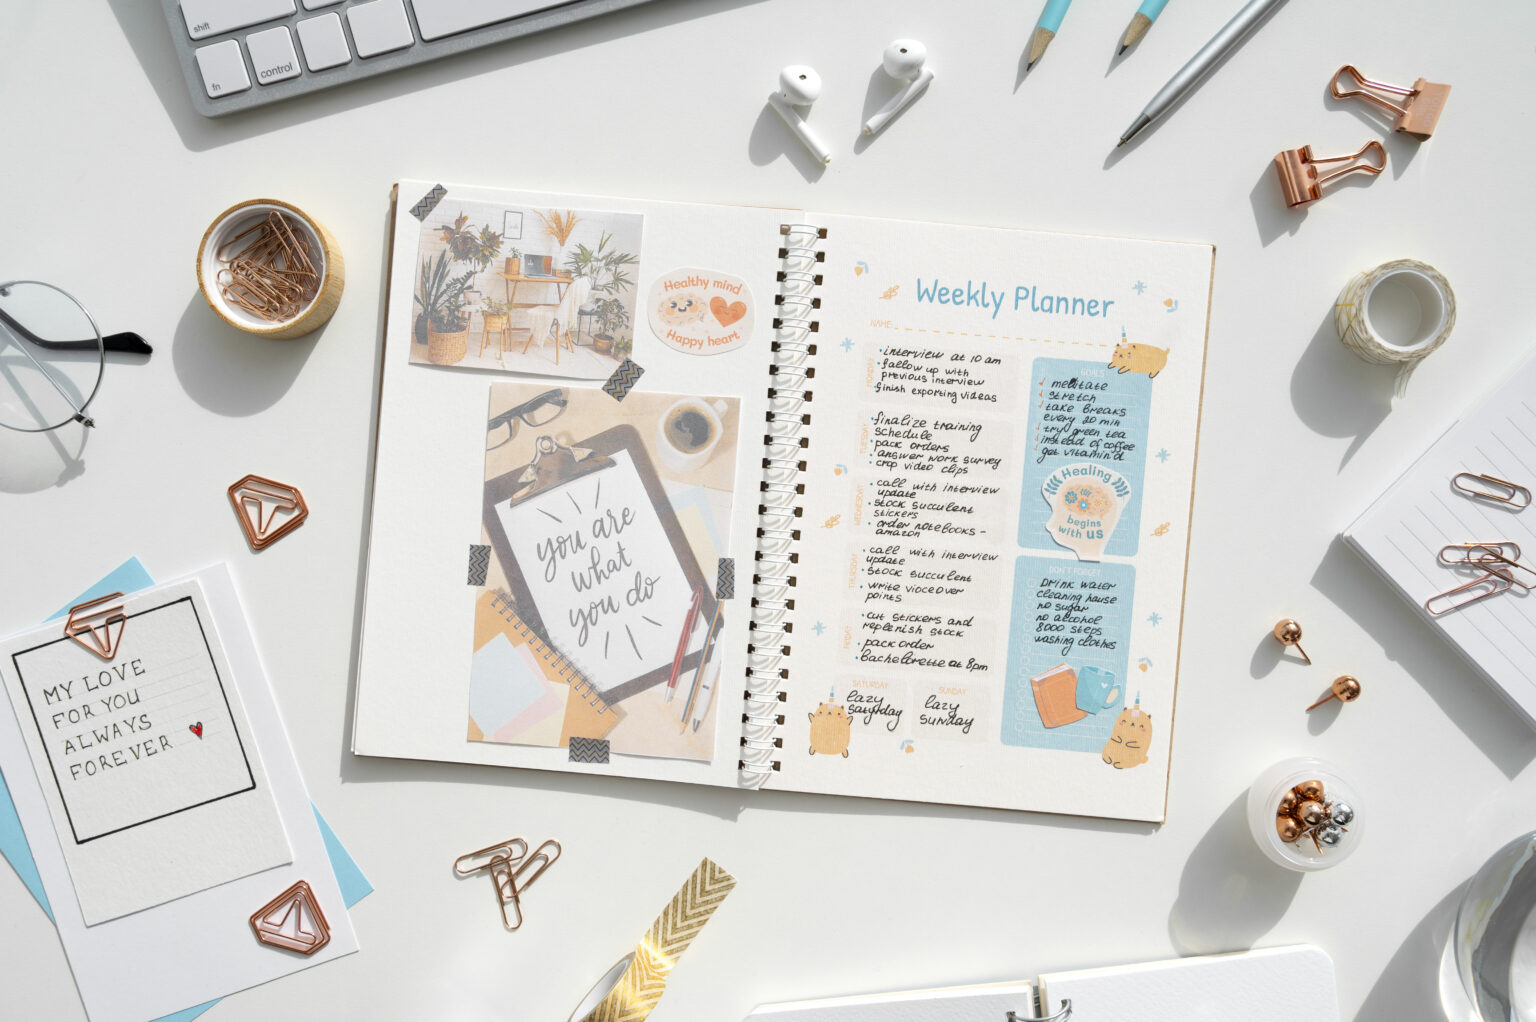 shift
fn
control
Healthy mind
Happy heart
you are
what
you do
MY LOVE
FOR YOU
ALWAYS
FOREVER
Weekly Planner
NAME:
MONDAY
•interview at 10 am
•fallow up with
previous interview
finish exporting videas
TUESDAY
•finalize training
schedule
•pack orders
•answer work survey
•crop video clips
WEDNESDAY
•call with interview
update
•stock succulent
stickers
•order notebooks -
amazon
•call with interview
update
•stock succulent
•write vioceover
points
FRIDAY
•cut stickers and
replenish stock
•pack order
•bachelorette at 8pm
SATURDAY
lazy
saturday
SUNDAY
lazy
SUNday
GOALS
meditate
stretch
take breaks
every 20 min
try green tea
instead of coffee
get vitamin d
Healing
begins
with us
DON'T FORGET
DRINK water
cleaning house
no sugar
no alcohol
8000 steps
washing clothes